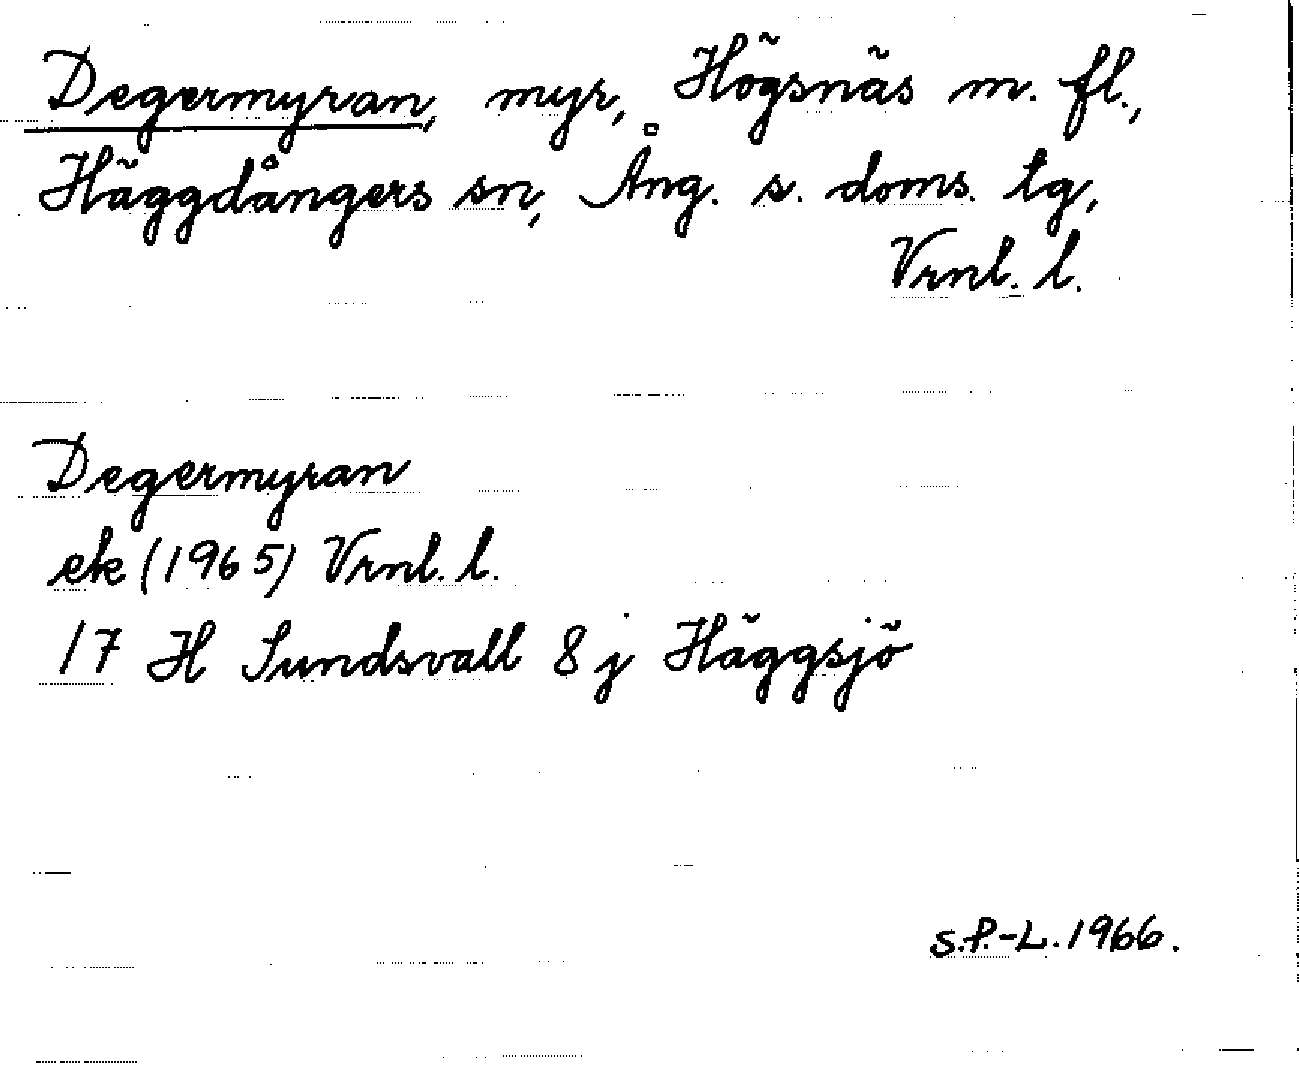 Degermyran, myr, Högsnäs m. fl.,
Häggdångers sn, Ång. s. doms. tg,
Vrnl. l.
Degermyran
ek (1965) Vrnl. l.
17 H Sundsvall 8 j Häggsjö
S.P.-L. 1966.